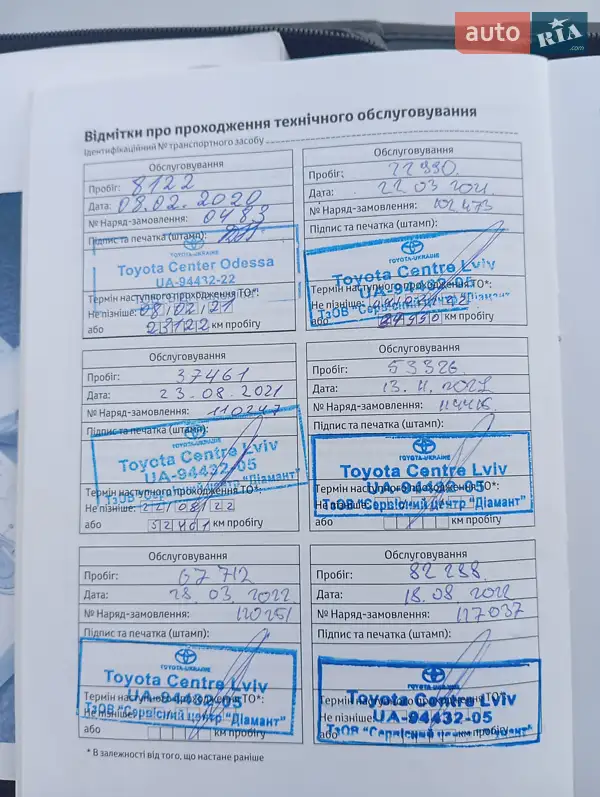 auto RIA.com
Відмітки про проходження технічного обслуговування
Ідентифікаційний № транспортного засобу
Обслуговування
Пробіг: 8122
Дата: 08.02.2020
№ Наряд-замовлення: 0483
Підпис та печатка (штамп):
TOYOTA-UKRAINE
Toyota Center Odessa
UA-94432-22
Термін наступного проходження ТО*:
Не пізніше: 08 02 21
або 23122 км пробігу
Обслуговування
Пробіг: 22990
Дата: 22 03 2021
№ Наряд-замовлення: 102473
Підпис та печатка (штамп):
TOYOTA-UKRAINE
Toyota Centre Lviv
UA-94432-05
ТзОВ "Сервісний центр "Діамант"
Термін наступного проходження ТО*:
Не пізніше:
або км пробігу
Обслуговування
Пробіг: 37461
Дата: 23.08.2021
№ Наряд-замовлення: 110247
Підпис та печатка (штамп):
TOYOTA-UKRAINE
Toyota Centre Lviv
UA-94432-05
ТзОВ "Сервісний центр "Діамант"
Термін наступного проходження ТО*:
Не пізніше: 22 08 22
або 52461 км пробігу
Обслуговування
Пробіг: 53326
Дата: 13.11.2021
№ Наряд-замовлення: 114415
Підпис та печатка (штамп):
TOYOTA-UKRAINE
Toyota Centre Lviv
UA-94432-05
ТзОВ "Сервісний центр "Діамант"
Термін наступного проходження ТО*:
Не пізніше:
або км пробігу
Обслуговування
Пробіг: 67712
Дата: 28.03.2022
№ Наряд-замовлення: 120251
Підпис та печатка (штамп):
TOYOTA-UKRAINE
Toyota Centre Lviv
UA-94432-05
ТзОВ "Сервісний центр "Діамант"
Термін наступного проходження ТО*:
Не пізніше:
або км пробігу
Обслуговування
Пробіг: 82288
Дата: 18.08 2022
№ Наряд-замовлення: 127037
Підпис та печатка (штамп):
TOYOTA-UKRAINE
Toyota Centre Lviv
UA-94432-05
ТзОВ "Сервісний
Термін наступного проходження ТО*:
Не пізніше:
або км пробігу
* В залежності від того, що настане раніше